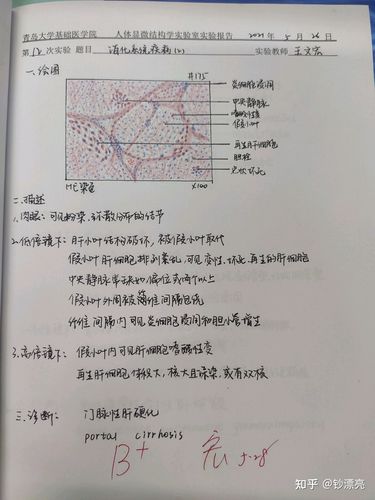 青岛大学基础医学院 人体显微结构学实验室实验报告 2021 年 5 月 26 日
第 12 次实验 题目 消化系统疾病(2) 实验教师 王文宏
一、绘图
#175
炎细胞浸润
中央静脉
嗜酸性变
假小叶
再生肝细胞
胆栓
点状坏死
HE染色 ×100
二、描述
1. 肉眼: 可见粉染、弥散分布的结节
2. 低倍镜下: 肝小叶结构破坏, 被假小叶取代
假小叶肝细胞排列紊乱, 可见变性、坏死、再生的肝细胞
中央静脉常缺如、偏位或两个以上
假小叶外周被纤维间隔包绕
纤维间隔内可见炎细胞浸润和胆小管增生
3. 高倍镜下: 假小叶内可见肝细胞嗜酸性变
再生肝细胞体积大, 核大且深染, 或有双核
三、诊断: 门脉性肝硬化
portal cirrhosis
B+ 5.28
知乎 @钞漂亮